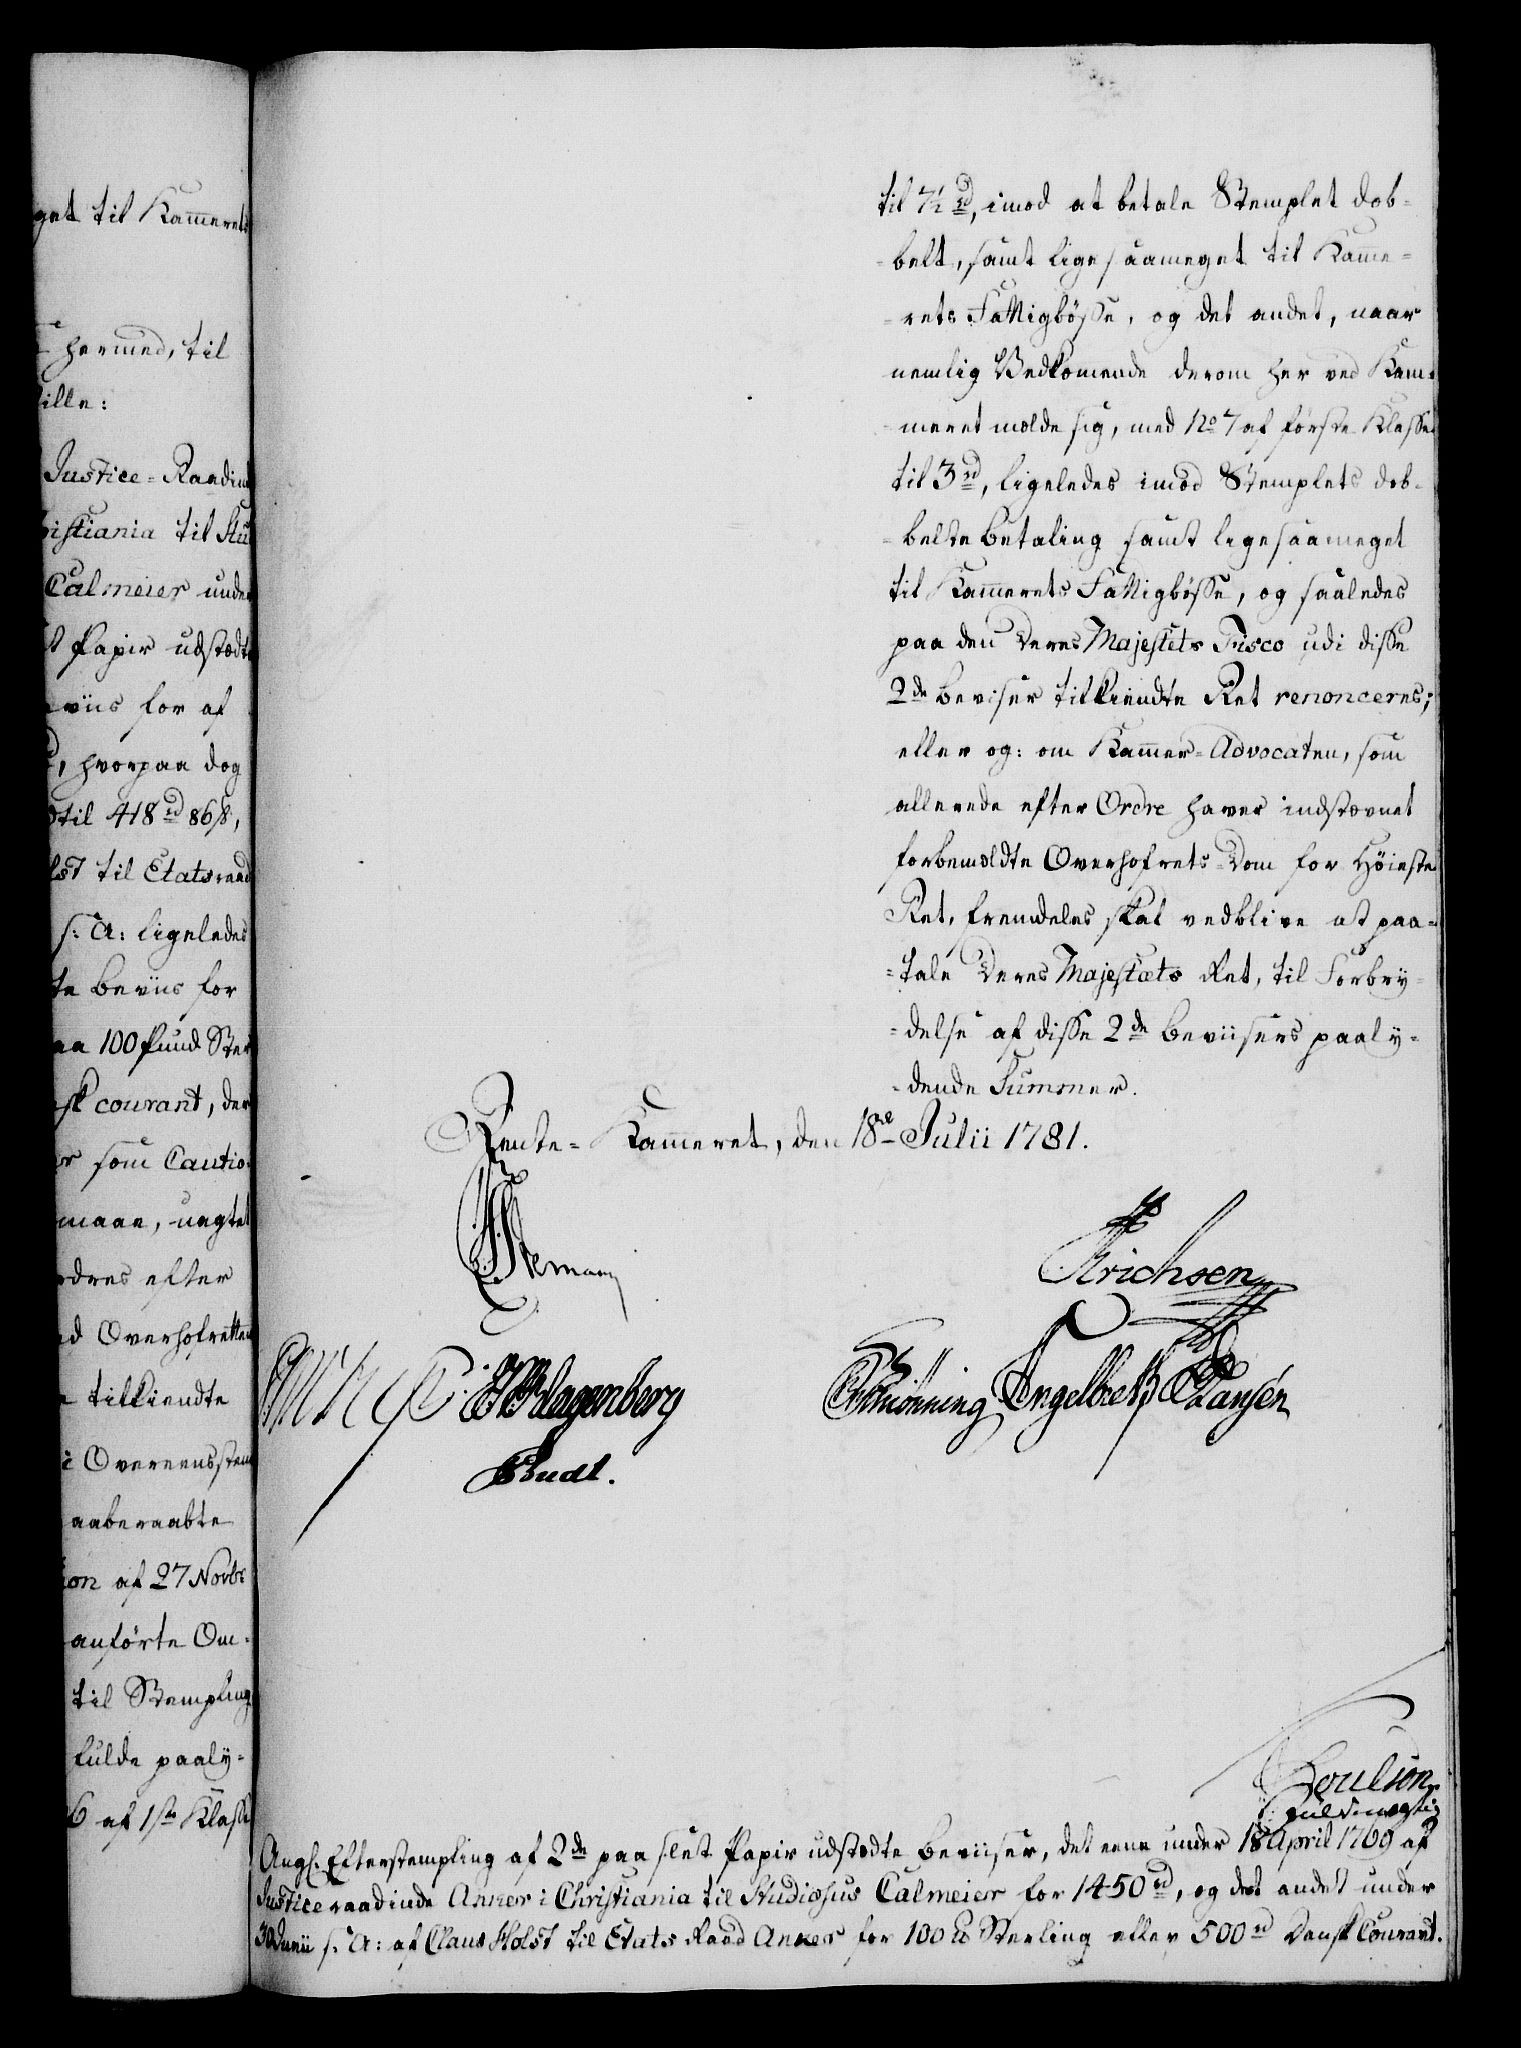 get til Kammerets
hermed, til
ille:
Justice-Raadin
istiania til Stu
Calmeier under
Papir udstædte
eviis for af
, hvorpaa dog
til 418 rd 86 s,
lst til Etatsraad
s: A: ligeledes
te beviis for
aa 100 Pund Ster
sk courant, der
r som Cautio-
maae, uagtet
rdres efter
ed Overhofretten
tilkiendte
i Overeensstem
aaberaabte
ion af 27 Novbr
anførte Om-
til Stempling
fulde paaly-
6 af 1ste Klasse
til 7½ rd, imod at betale Stemplet dob-
-belt, samt ligesaameget til Kamme-
-rets Fattigbøsse, og det andet, naar
nemlig Vedkommende derom her ved Kam-
-meret melde sig, med No 7 af første Klasse
til 3 rd, ligeledes imod Stemplets dob-
-belte betaling samt ligesaameget
til Kammerets Fattigbøsse, og saaledes
paa den Deres Majestets Fisco udi disse
2de beviser tilkiendte Ret renonceres;
eller og: om Kammer-Advocaten, som
allerede efter Ordre haver indstævnet
forbemeldte Overhofrets-Dom for Høieste
Ret, fremdeles skal vedblive at paa-
-tale Deres Majestæts Ret, til Forbry-
-delse af disse 2de beviisers paaly-
-dende Summer.
Rente-Kammeret, den 18de Julii 1781.
Stemann
Erichsen
Klagenberg
Schiønning Engelbreth Hansen
Budt.
Poulson
fuldmægtig
Angl. Efterstempling af 2de paa slet Papir udstædte beviiser, det eene under 18 April 1769 af
Justiceraadinde Anker i Christiania til Studiosus Calmeier for 1450 rd, og det andet under
30 Junii s: A: af Claus Holst til Etats Raad Anker for 100 £ Sterling eller 500 rd Dansk Courant.